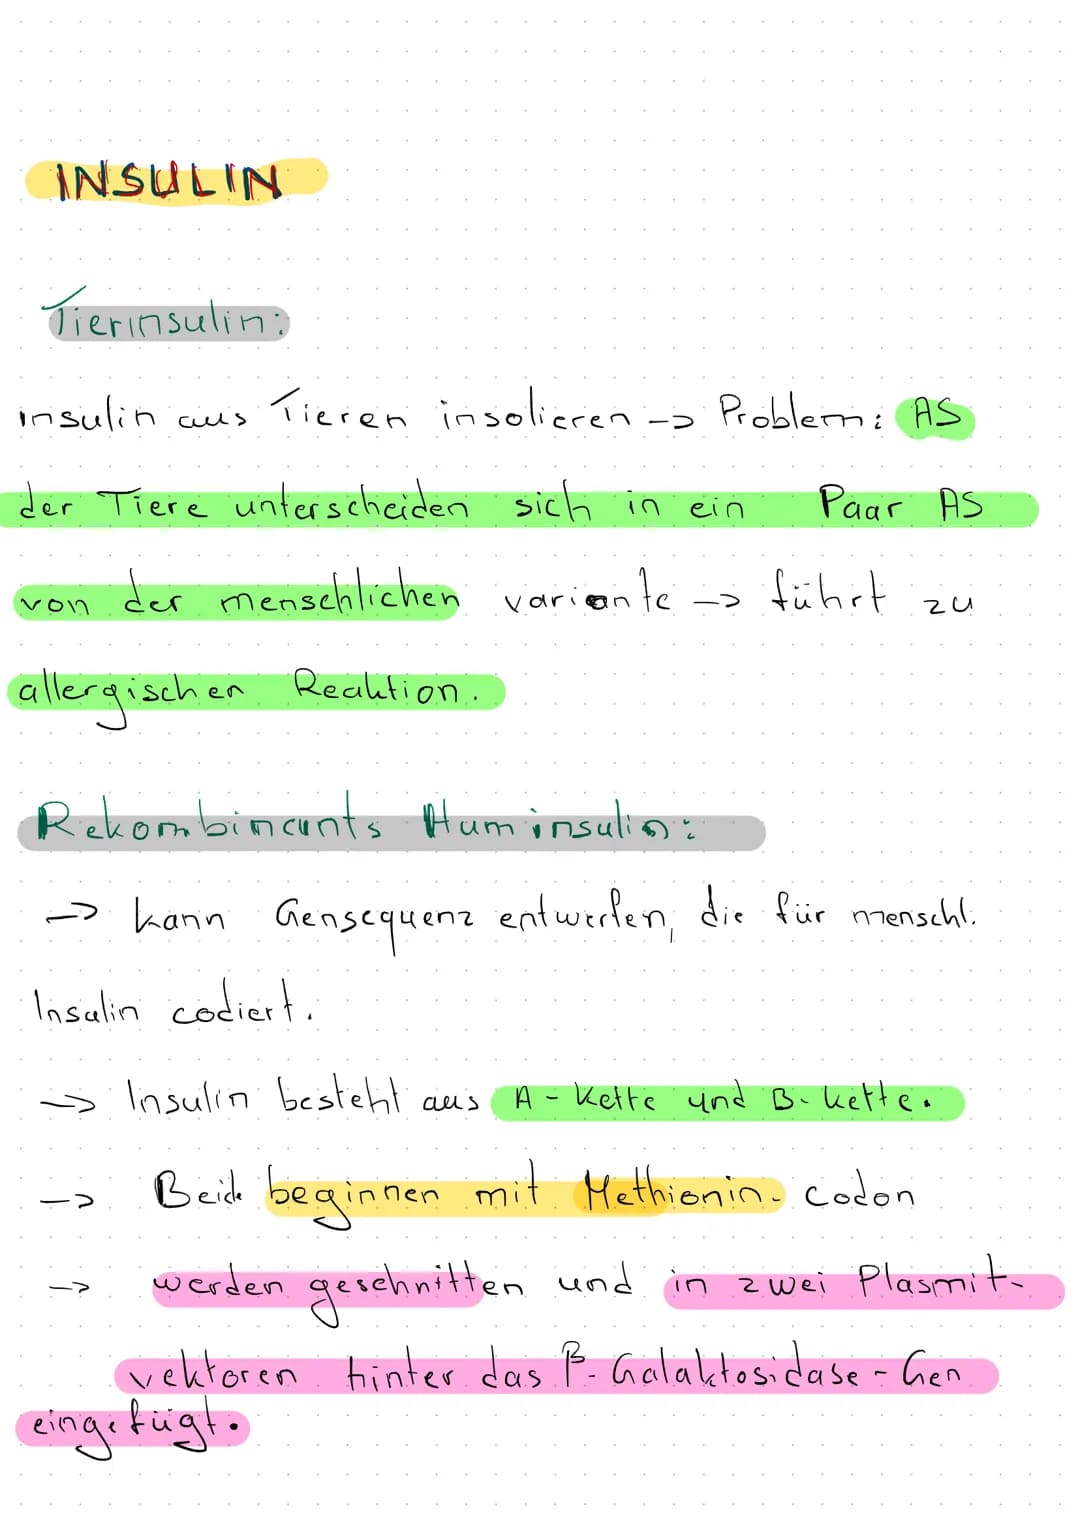 INSULIN
Tierinsulin:
insulin aus Tieren insolieren -> Problem: AS
der Tiere unterscheiden sich in ein Paar AS
von der menschlichen variante -> führt zu
allergischen Reaktion.
Rekombinants Huminsulin:
-> kann Gensequenz entwerfen, die für menschl.
Insulin codiert.
-> Insulin besteht aus A-Kette und B-kette.
-> Beide beginnen mit Methionin-codon
-> werden geschnitten und in zwei Plasmit-
vektoren hinter das β-Galaktosidase-Gen
eingefügt.